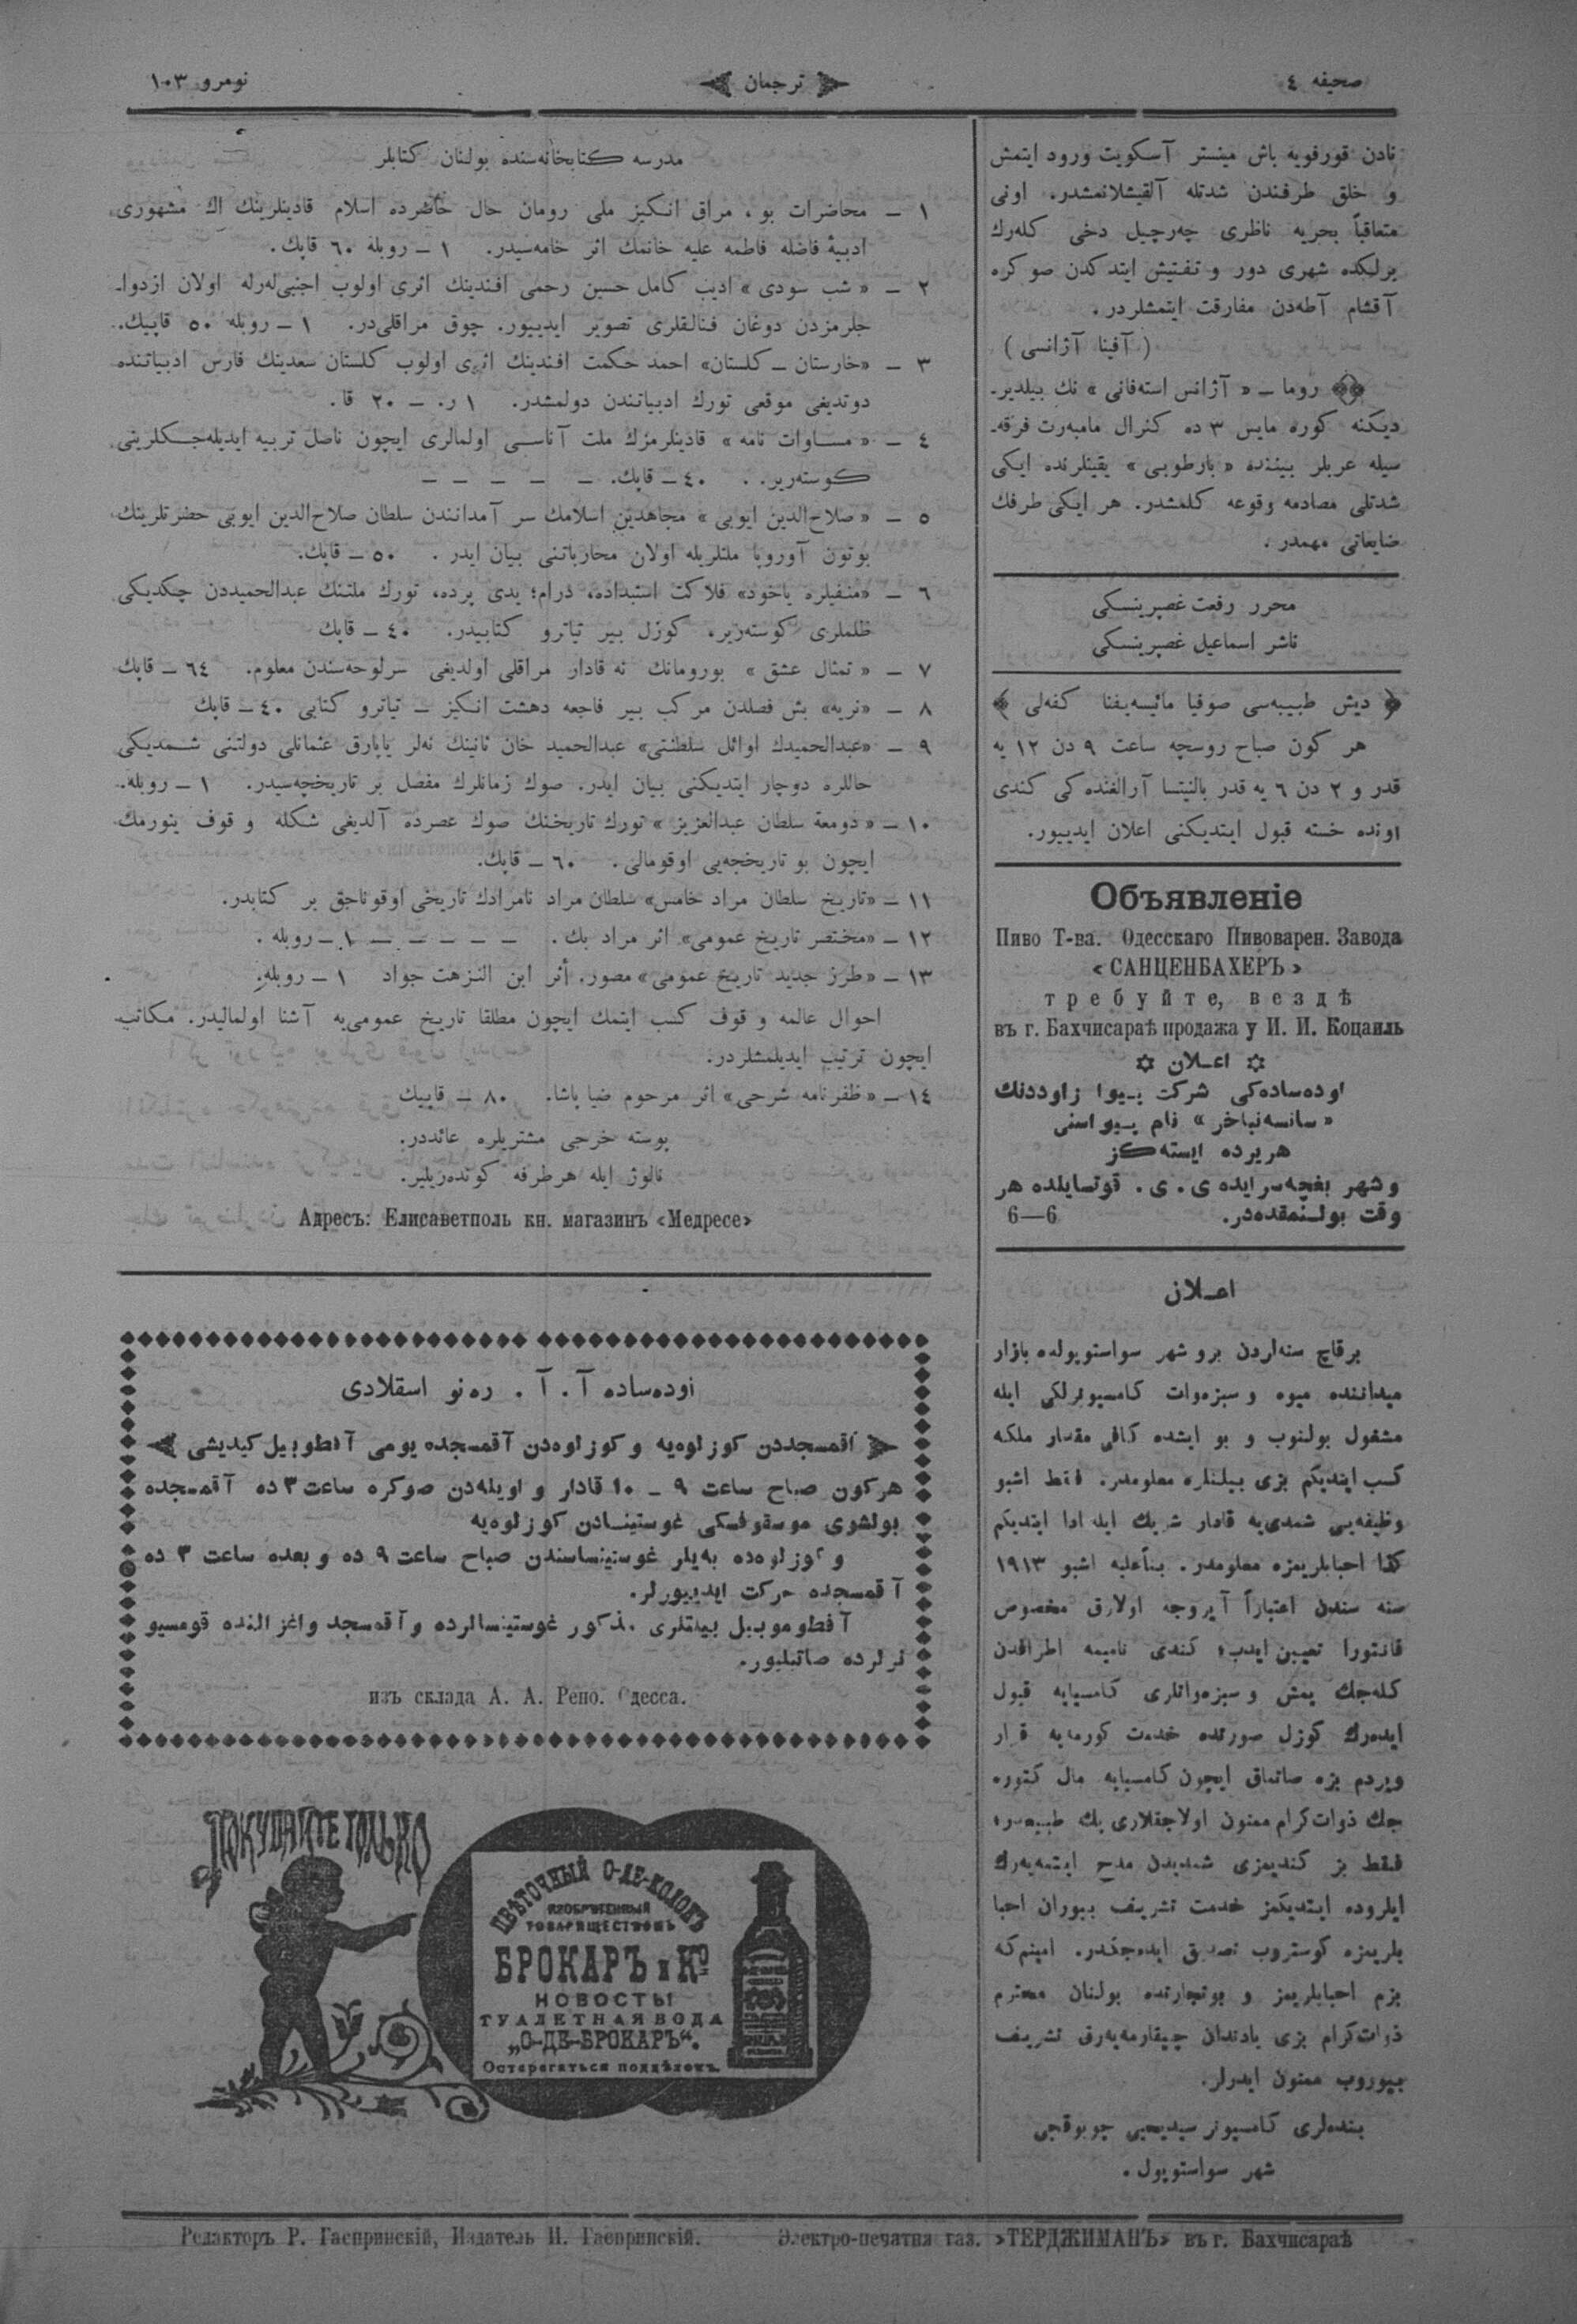 صحیفه ٤
ترجمان
نومرو ١٠٣
نادن قورفویه باش مینستر آسکویت ورود ایتمش
و خلق طرفندن شدتله آلقیشلانمشدر. اونی
متعاقباً بحریه ناظری چه‌رچیل دخی کله‌رك
برلیکده شهری دور و تفتیش ایتدکدن صوکره
آقشام آطه‌دن مفارقت ایتمشلردر.
( آفینا آژانسی )
روما ــ « آژانس استه‌فانی » نك بیلدیر‌ـ
دیکنه کوره مایس ٣ ده کنرال مامبه‌رت فرقه‌ـ
سیله عربلر بیننده « بارطوبی » یقینلرنده ایکی
شدتلی مصادمه وقوعه کلمشدر. هر ایکی طرفك
ضایعاتی مهمدر.
محرر رفعت غصپرینسکی
ناشر اسماعیل غصپرینسکی
دیش طبیبه‌سی صوفیا مائیسه‌یفنا کفه‌لی
هر کون صباح روسچه ساعت ٩ دن ١٢ یه
قدر و ٢ دن ٦ یه قدر بالنیتسا آرالغنده کی کندی
اونده خسته قبول ایتدیکنی اعلان ایدییور.
Объявленіе
Пиво Т-ва. Одесскаго Пивоварен. Завода
«САНЦЕНБАХЕРЪ»
требуйте, вездѣ
въ г. Бахчисараѣ продажа у И. И. Коцаиль
اعـلان
اوده‌ساده‌کی شرکت پـیوا زاوددنك
« سانسه‌نباخر » نام پـیواسنی
هریرده ایسته‌کز
و شهر بغچه‌سرایده ی. ی. قوتسایلده هر
وقت بولـنمقده‌در. 6—6
اعـلان
برقاچ سنه‌لردن برو شهر سواستوپولده بازار
میداننده میوه و سبزه‌وات کامسیونرلکی ایله
مشغول بولنوب و بو ایشده کافی مقدار ملکه
کسب ایتدیکم بزی بیلنلره معلومدر. فقط اشبو
وظیفه‌یی شمدی‌یه قادار شریك ایله ادا ایتدیکم
کذا احبابلریمزه معلومدر. بنأعلیه اشبو ١٩١٣
سنه سندن اعتباراً آیروجه اولارق مخصوص
قانتورا تعیین ایدب، کندی نامیمه اطرافدن
کله‌جك یمش و سبزه‌واتلری کامسیایه قبول
ایده‌رك کوزل صورتده خدمت کورمه‌یه قرار
ویردم بزه صاتماق ایچون کامسیایه مال کتوره
جك ذوات کرام ممنون اولاجقلاری بك طبیعیدر،
فقط بز کندیمزی شمدیدن مدح ایتمه‌یه‌رك
ایلروده ایتدیکمز خدمت تشریف بیوران احبا
بلریمزه کوستروب تصدیق ایده‌جکدر. امینم که
بزم احبابلریمز و بو تجارتده بولنان محترم
ذوات کرام بزی یادندان چیقارمه‌یه‌رق تشریف
بیوروب ممنون ایدرلر.
بنده‌لری کامسیونر سیدیحیی چوبوقجی
شهر سواستوپول.
مدرسه کتابخانه‌سنده بولنان کتابلر
١ ــ محاضرات بو، مراق انکیز ملی رومان حال حاضرده اسلام قادینلرینك اك مشهوری
ادیبۀ فاضله فاطمه علیه خانمك اثر خامه‌سیدر. ١ ــ روبله ٦٠ قاپك.
٢ ــ « شب سودی » ادیب کامل حسین رحمی افندینك اثری اولوب اجنبی‌له‌رله اولان ازدواـ
جلرمزدن دوغان فنالقلری تصویر ایدییور. چوق مراقلی‌در. ١ ــ روبله ٥٠ قاپیك.
٣ ــ «خارستان ــ کلستان» احمد حکمت افندینك اثری اولوب کلستان سعدینك فارس ادبیاتنده
دوتدیغی موقعی تورك ادبیاتندن دولمشدر. ١ ر. ــ ٢٠ قا.
٤ ــ « مسـاوات نامه » قادینلرمزك ملت آناسـی اولمالری ایچون ناصل تربیه ایدیله‌جـکلرینی
کوسته‌ریر. . ٤٠ ــ قاپك. ــ ــ ــ ــ ــ
٥ ــ « صلاح‌الدین ایوبی » مجاهدین اسلامك سر آمدانندن سلطان صلاح‌الدین ایوبی حضرتلرینك
بوتون آوروپا ملتلریله اولان محارباتنی بیان ایدر. ٥٠ ــ قاپك.
٦ ــ «منفیلره یاخود» فلاکت استبداده، درام؛ یدی پرده، تورك ملتنك عبدالحمیددن چکدیکی
ظلملری کوسته‌ریر. کوزل بیر تیاترو کتابیدر. ٤٠ ــ قاپك
٧ ــ « تمثال عشق » بورومانك نه قادار مراقلی اولدیغی سرلوحه‌سندن معلوم. ٦٤ ــ قاپك
٨ ــ «نریه» بش فصلدن مرکب بیر فاجعه دهشت انکیز ــ تیاترو کتابی ٤٠ ــ قاپك
٩ ــ «عبدالحمیدك اوائل سلطنتی» عبدالحمید خان ثانینك نه‌لر یاپارق عثمانلی دولتنی شـمدیکی
حاللره دوچار ایتدیکنی بیان ایدر. صوك زمانلرك مفصل بر تاریخچه‌سیدر. ١ ــ روبله.
١٠ ــ « دومعۀ سلطان عبدالعزیز » تورك تاریخنك صوك عصرده آلدیغی شکله و قوف یتورمك
ایچون بو تاریخچه‌یی اوقومالی. ٦٠ ــ قاپك.
١١ ــ «تاریخ سلطان مراد خامس» سلطان مراد نامرادك تاریخی اوقوناجق بر کتابدر.
١٢ ــ «مختصر تاریخ عمومی» اثر مراد بك. ــ ــ ــ ــ ــ ١ ــ روبله.
١٣ ــ «طرز جدید تاریخ عمومی» مصور. أثر ابن النزهت جواد ١ ــ روبله.
احوال عالمه و قوف کسب ایتمك ایچون مطلقا تاریخ عمومی‌یه آشنا اولمالیدر. مکاتب
ایچون ترتیب ایدیلمشلردر.
١٤ ــ «ظفرنامه شرحی» اثر مرحوم ضیا پاشا. ٨٠ ــ قاپیك
پوسته خرجی مشتریلره عائددر.
نالوژ ایله هرطرفه کونده‌ریلیر.
Адресъ: Елисаветполь кн. магазинъ «Медресе»
اوده‌ساده آ. آ. ره‌نو اسقلادی
آقمسجددن کوزلوه‌یه و کوزلوه‌دن آقمسجده یومی آفطوبیل کیدیشی
هرکون صباح ساعت ٩ ــ ١٠ قادار و اویله‌دن صوکره ساعت ٣ ده آقمسجده
بولشوی موسقوفسکی غوستینیسادن کوزلوه‌یه
و کوزلوه‌ده به‌یلر غوستینساسندن صباح ساعت ٩ ده و بعده ساعت ٣ ده
آقمسجده حرکت ایدییورلر.
آفطوموبیل بیلتلری مذکور غوستینسالرده و آقمسجد واغزالنده قومسیو
نرلرده صاتیلیور.
изъ склада А. А. Рено. Одесса.
ПОКУПАЙТЕ ТОЛЬКО
ЦВѢТОЧНЫЙ О-ДЕ-КОЛОНЪ
ИЗОБРѢТЕННЫЙ
ТОВАРИЩЕСТВОМЪ
БРОКАРЪ и Кº
НОВОСТЬ!
ТУАЛЕТНАЯ ВОДА
„О-ДЕ-БРОКАРЪ“.
Остерегаться поддѣлокъ.
Редакторъ Р. Гаспринскій, Издатель И. Гаспринскій. Электро-печатня газ. »ТЕРДЖИМАНЪ» въ г. Бахчисараѣ